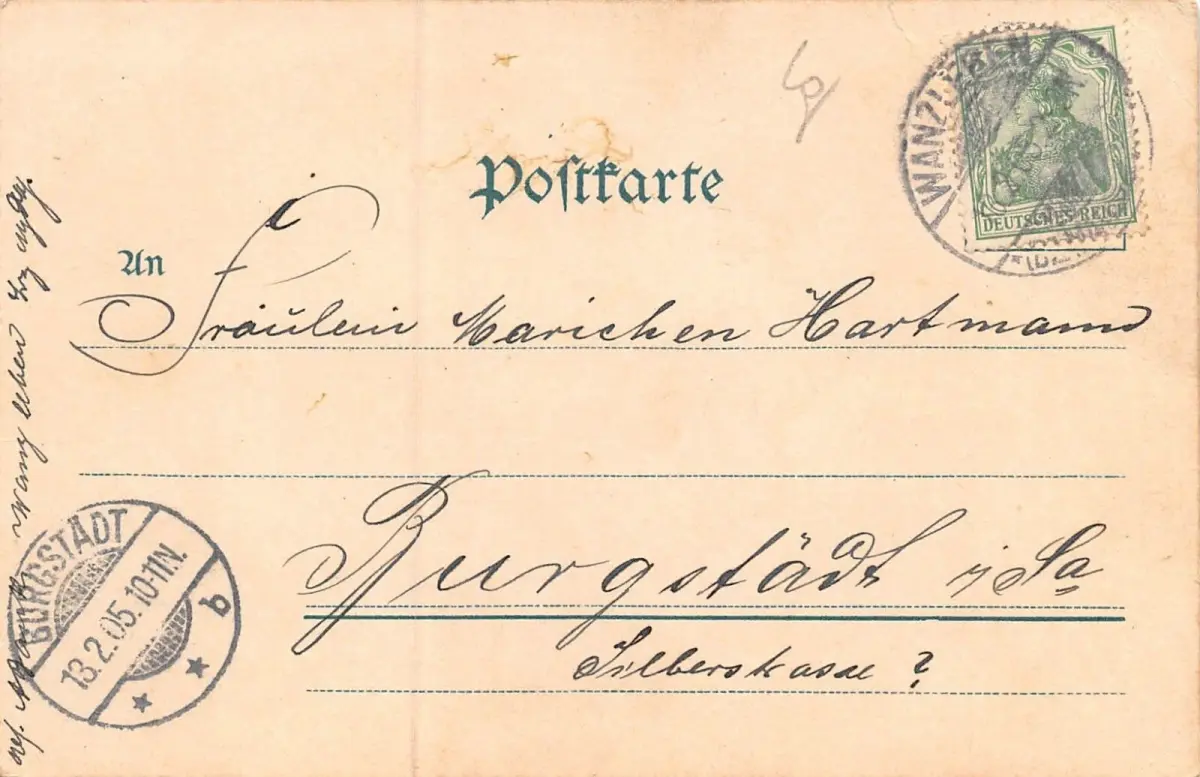 Postkarte
An
Fräulein Marichen Hartmann
Burgstädt i/Sa
Silberstrasse ?
WANZLEBEN
DEUTSCHES REICH
BURGSTÄDT
13.2.05.10-11N.
b
Wanzleben